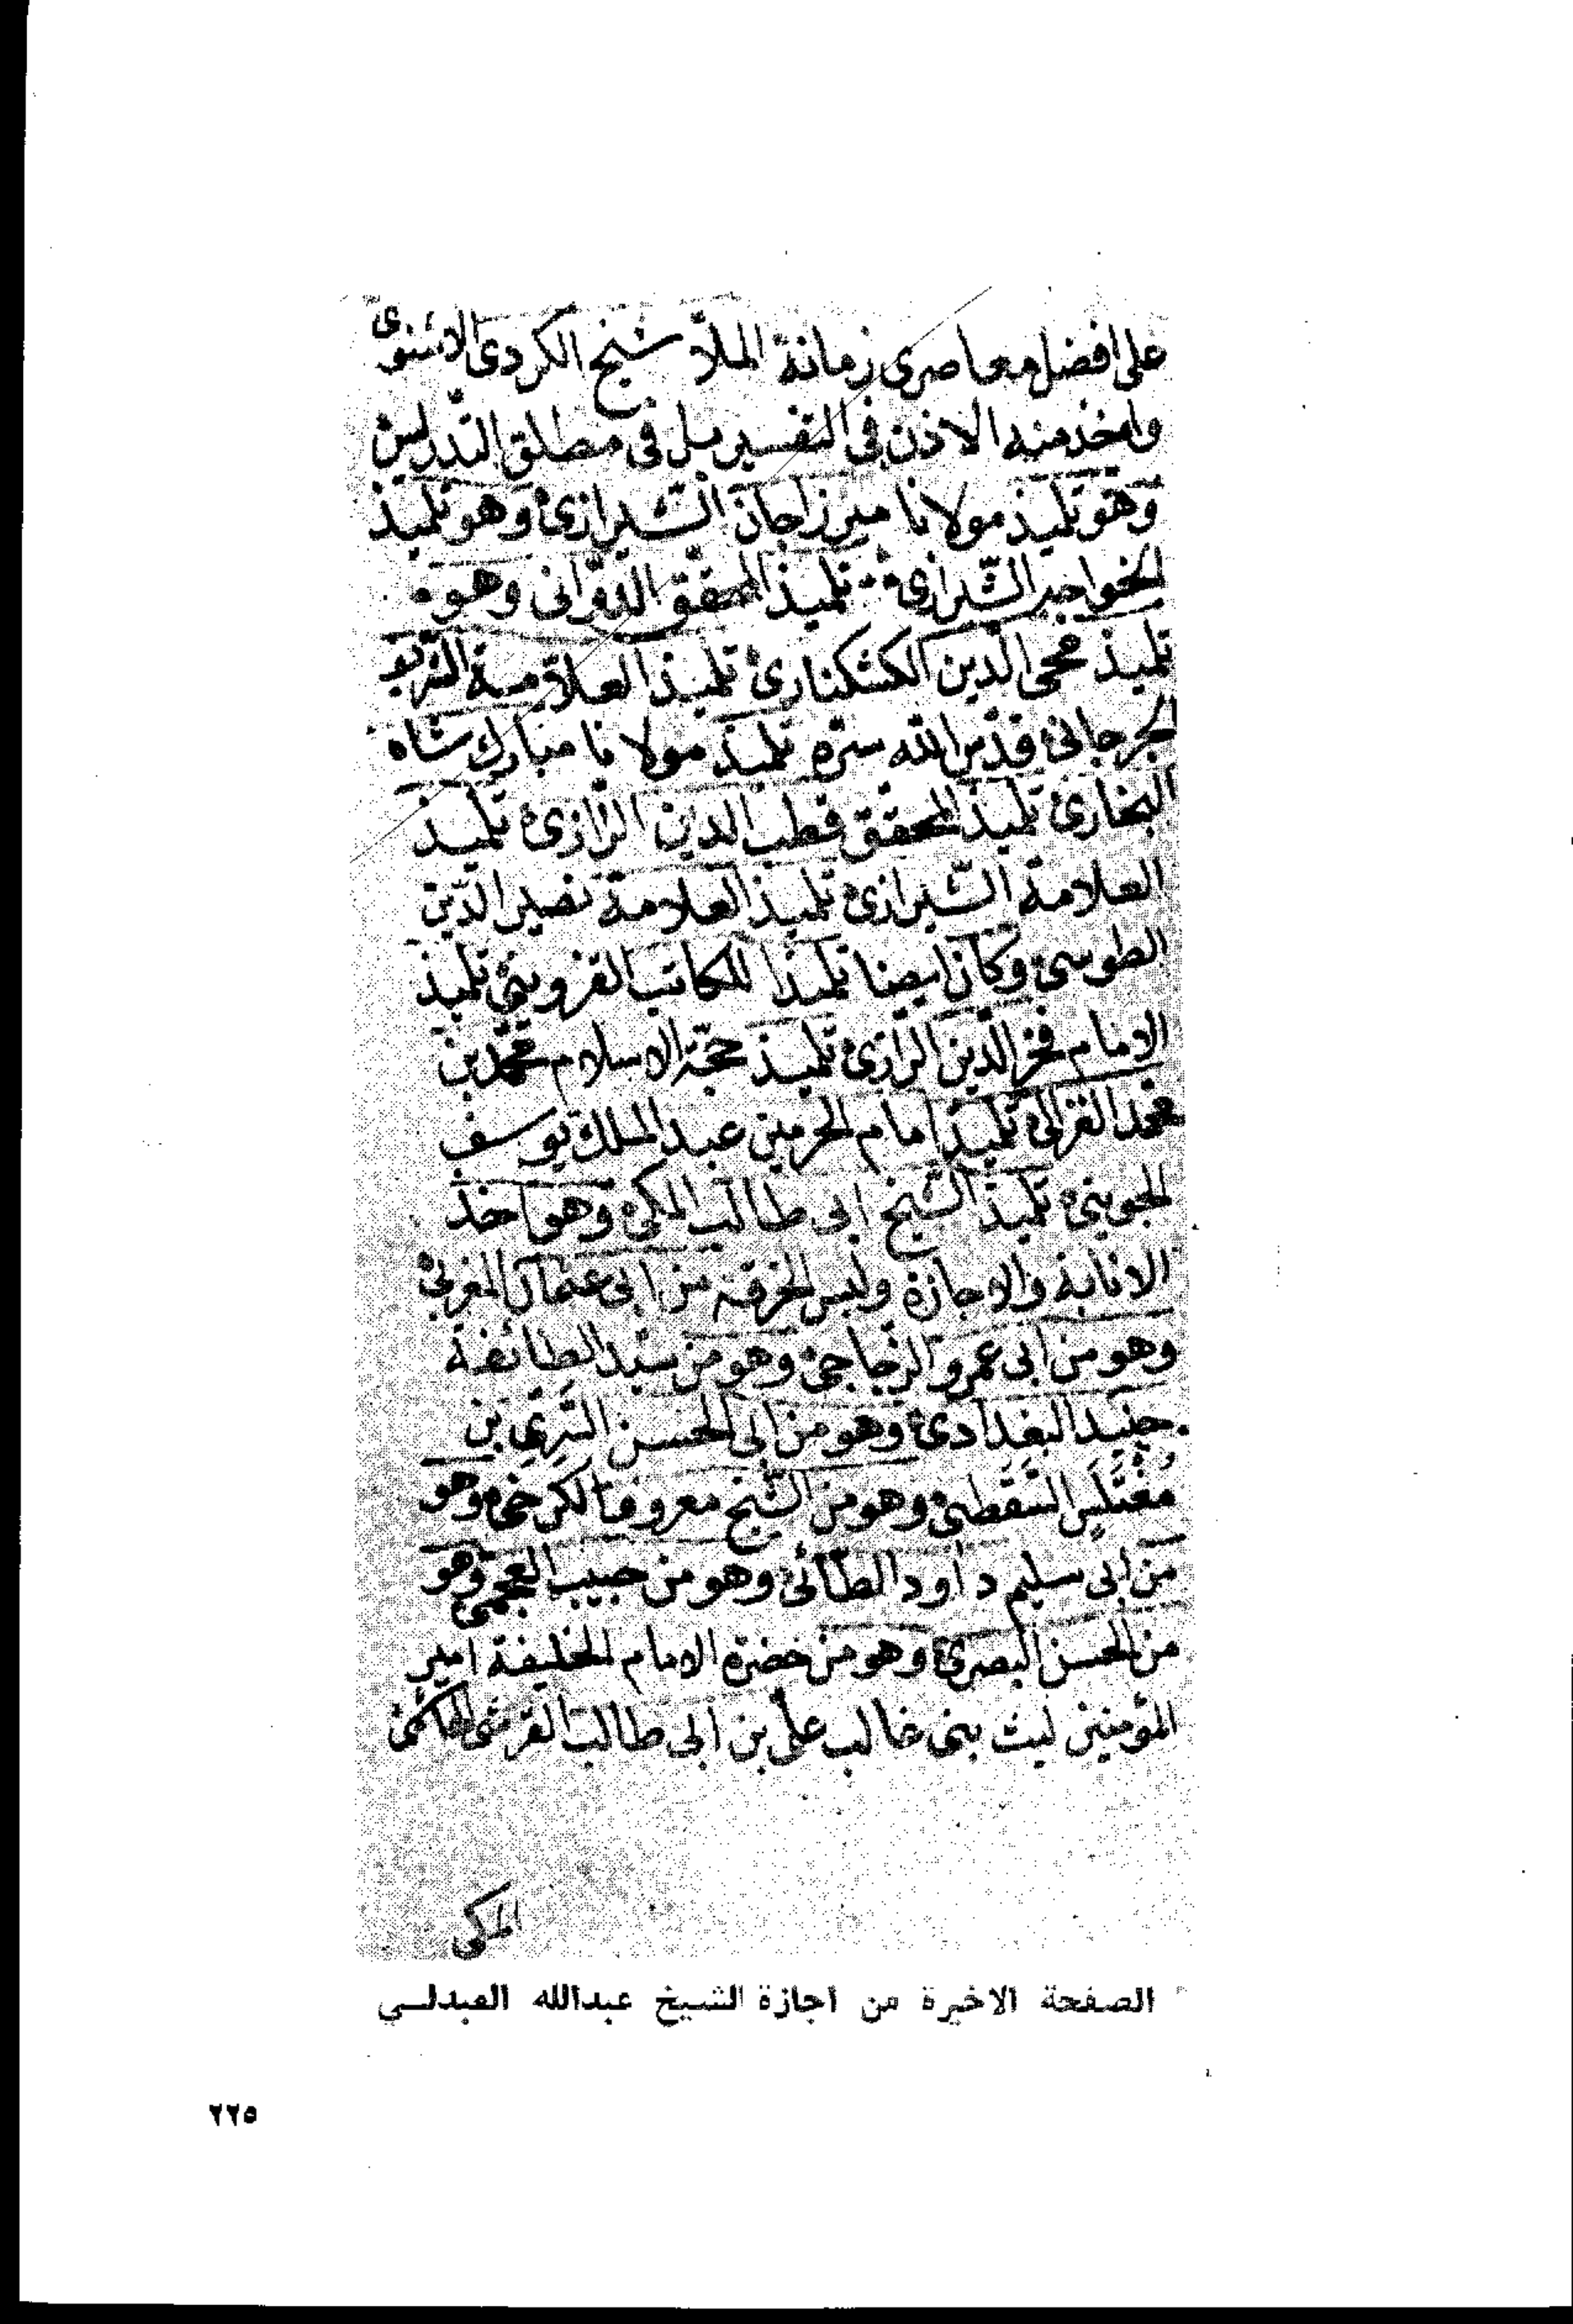 على افضل معاصرى زمانة الملاّ شيخ الكردى الاشنوى
واخذ منه الاذن فى التفسير بل فى مطلق التدريس
وهو تلميذ مولانا ميرزاجان الشيرازى وهو تلميذ
الخواجه الشيرازى تلميذ المحقق الدوّانى وهو
تلميذ محى الدين الكشكنارى تلميذ العلاّمة الشريف
الجرجانى قدّس الله سرّه تلميذ مولانا مبارك شاه
البخارى تلميذ المحقق قطب الدين الرازى تلميذ
العلامة الشيرازى تلميذ العلامة نصير الدين
الطوسى وكان ايضا تلميذا للكاتب القزوينى تلميذ
الامام فخر الدين الرازى تلميذ حجّة الاسلام محمّد بن
محمد الغزالى تلميذ امام الحرمين عبد الملك يوسف
الجوينى تلميذ الشيخ ابى طالب المكى وهو اخذ
الانابة والاجازة ولبس الخرقة من ابى عثمان المغربى
وهو من ابى عمرو الزجاجى وهو من سيّد الطائفة
جنيد البغدادى وهو من ابى الحسن السَّرِىّ بن
مُغَلِّسِ السَّقَطى وهو من الشيخ معروف الكرخى وهو
من ابى سليم داود الطائى وهو من حبيب العجمى وهو
من الحسن البصرى وهو من حضرة الامام الخليفة امير
المؤمنين ليث بنى غالب على بن ابى طالب القرشى الهاشمى
المكى
الصفحة الاخيرة من اجازة الشيخ عبدالله العبدلى
٢٢٥